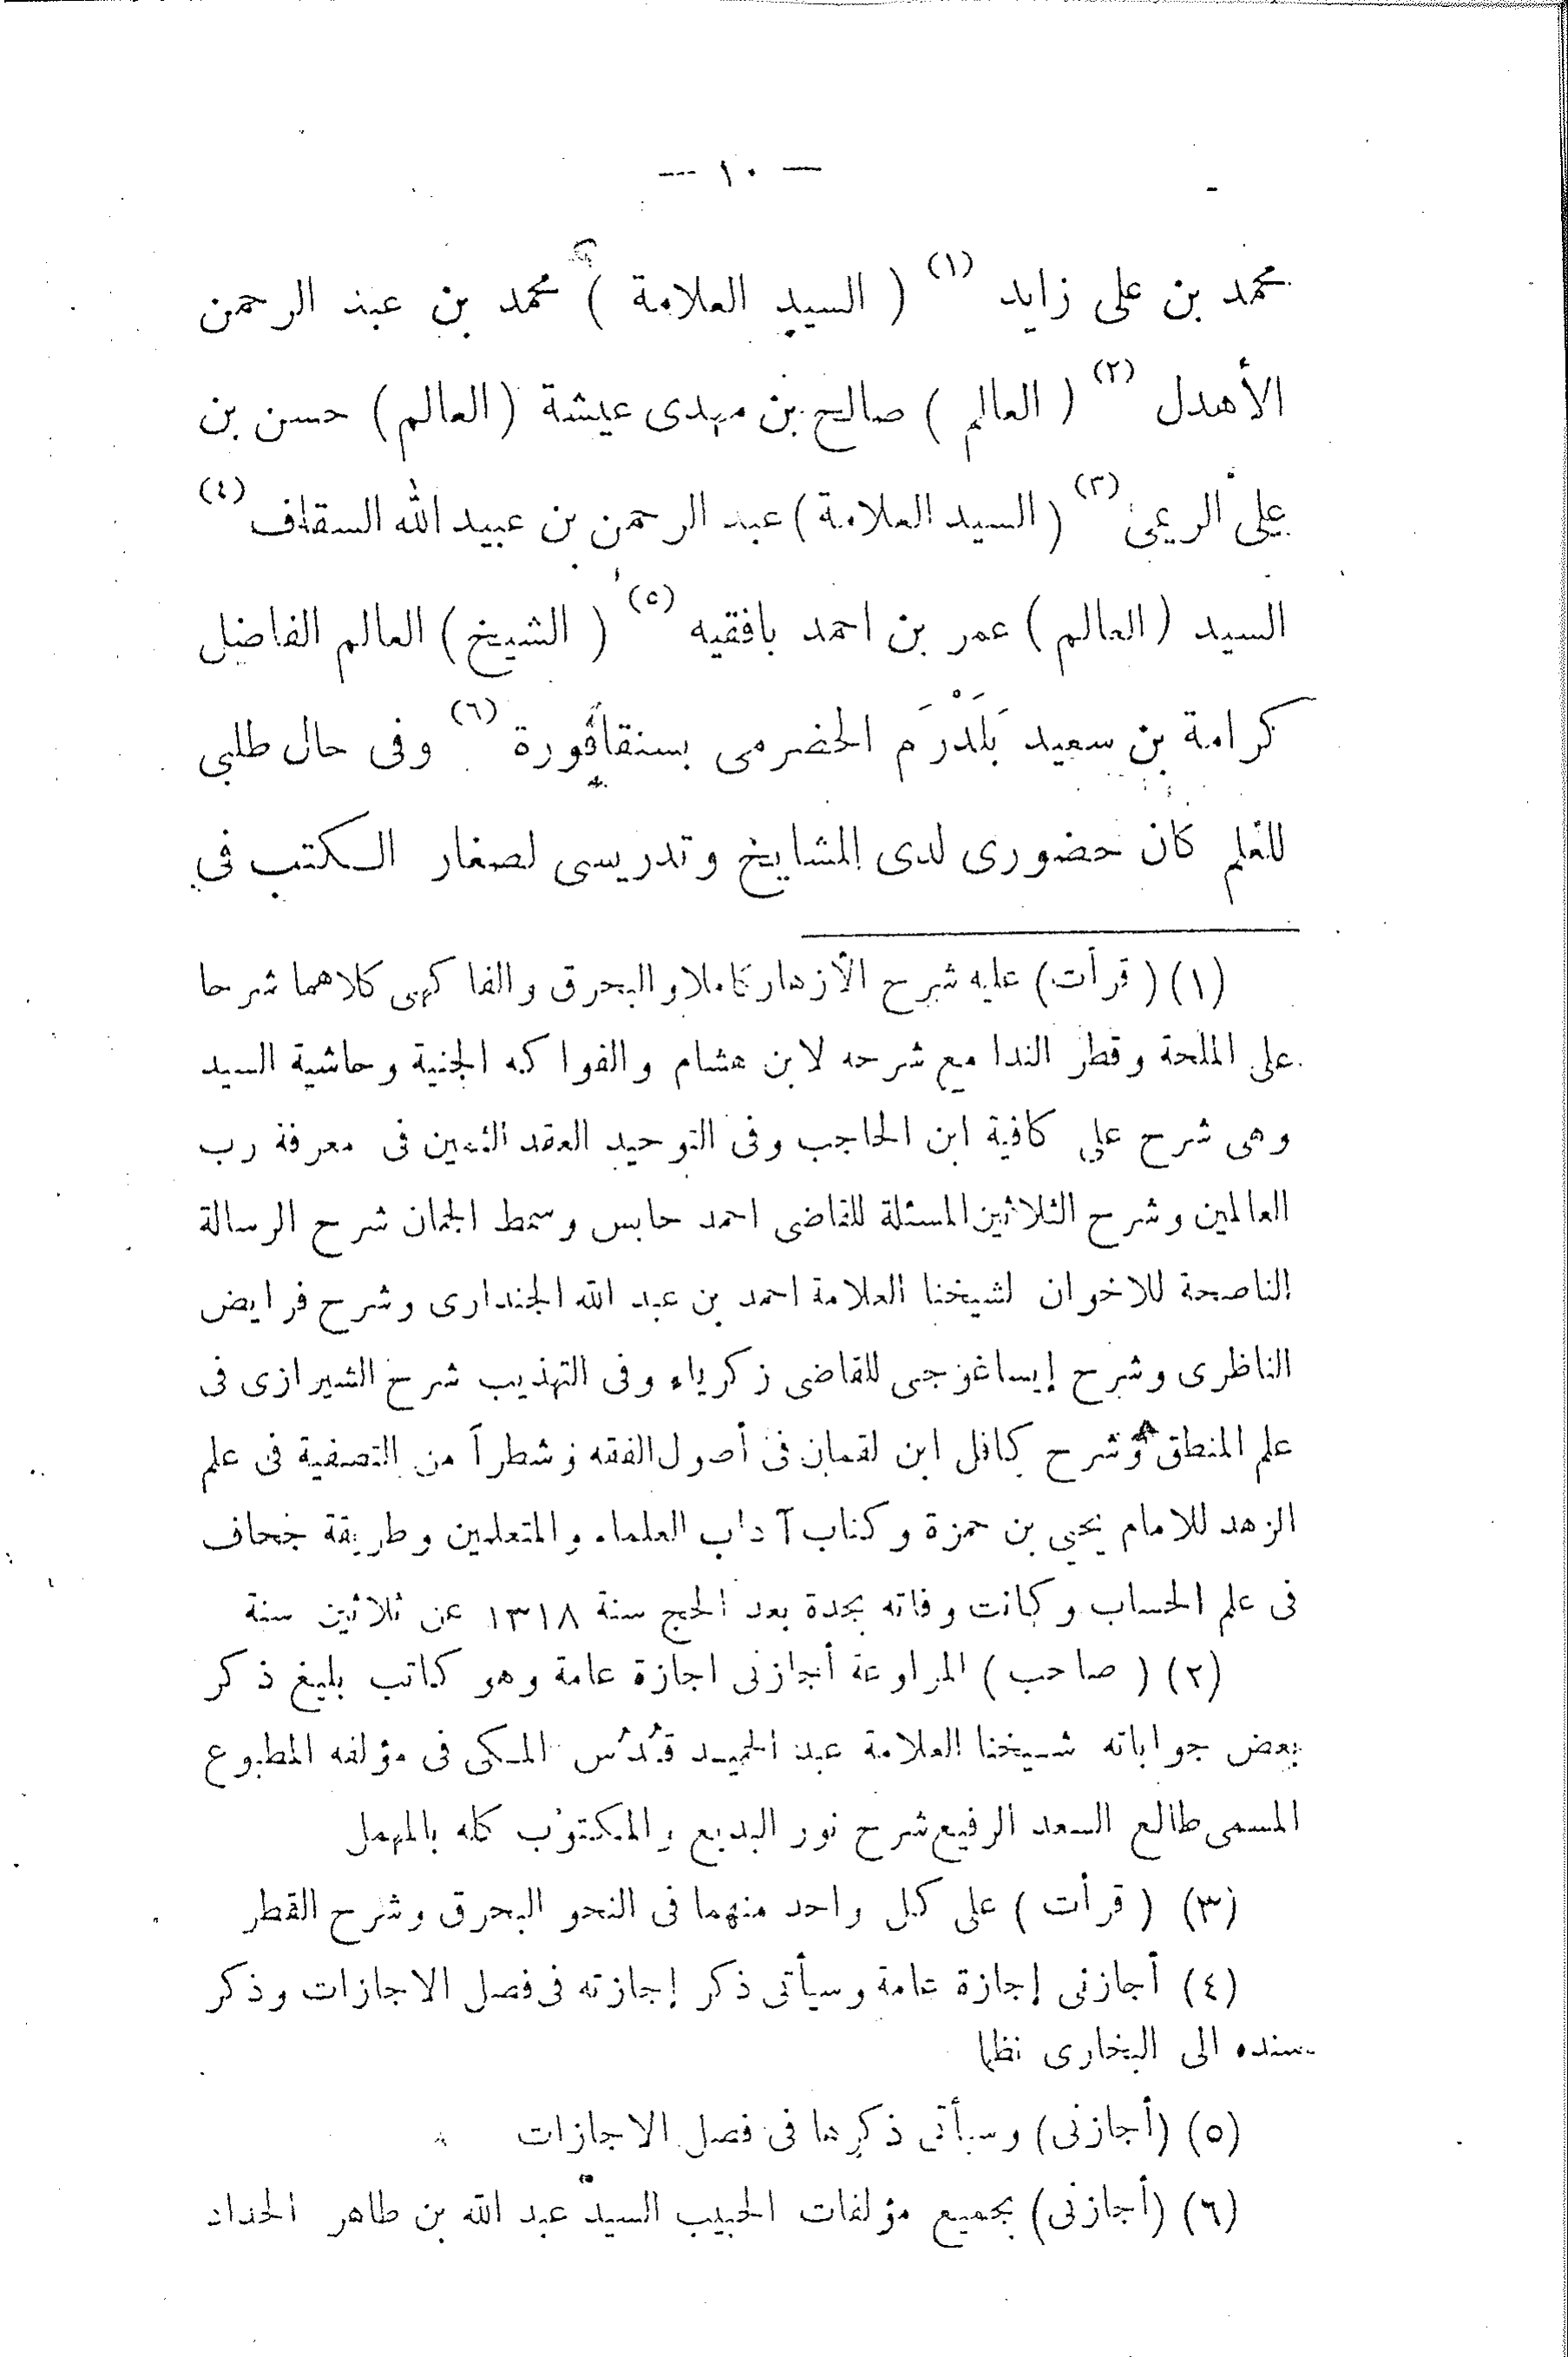 — ١٠ —
محمد بن على زايد (١) ( السيد العلامة ) محمد بن عبد الرحمن
الأهدل (٢) ( العالم ) صالح بن مهدى عيشة (العالم) حسن بن
على الريمى (٣) (السيد العلامة) عبد الرحمن بن عبيد الله السقاف (٤)
السيد (العالم) عمر بن احمد بافقيه (٥) ( الشيخ) العالم الفاضل
كرامة بن سعيد بَلَدْرَم الحضرمى بسنقافورة (٦) وفى حال طلبى
للعلم كان حضورى لدى المشايخ وتدريسى لصغار الكتب فى
(١) ( قرأت) عليه شرح الأزهار كاملا والبحرق والفاكهى كلاهما شرحا
على الملحة وقطر الندا مع شرحه لابن هشام والفواكه الجنية وحاشية السيد
وهى شرح على كافية ابن الحاجب وفى التوحيد العقد الثمين فى معرفة رب
العالمين وشرح الثلاثين المسئلة للقاضى احمد حابس وسمط الجمان شرح الرسالة
الناصحة للاخوان لشيخنا العلامة احمد بن عبد الله الجندارى وشرح فرايض
الناظرى وشرح إيساغوجى للقاضى زكرياء وفى التهذيب شرح الشيرازى فى
علم المنطق وشرح كافل ابن لقمان فى أصول الفقه وشطراً من التصفية فى علم
الزهد للامام يحيى بن حمزة وكتاب آداب العلماء والمتعلمين وطريقة جحاف
فى علم الحساب وكانت وفاته بجدة بعد الحج سنة ١٣١٨ عن ثلاثين سنة
(٢) ( صاحب ) المراوعة أجازنى اجازة عامة وهو كاتب بليغ ذكر
بعض جواباته شيخنا العلامة عبد الحميد قُدُس المكى فى مؤلفه المطبوع
المسمى طالع السعد الرفيع شرح نور البديع والمكتوب كله بالمهمل
(٣) ( قرأت ) على كل واحد منهما فى النحو البحرق وشرح القطر
(٤) أجازنى إجازة عامة وسيأتى ذكر إجازته فى فصل الاجازات وذكر
سنده الى البخارى نظما
(٥) (أجازنى) وسيأتى ذكرها فى فصل الاجازات
(٦) (أجازنى) بجميع مؤلفات الحبيب السيد عبد الله بن طاهر الحداد